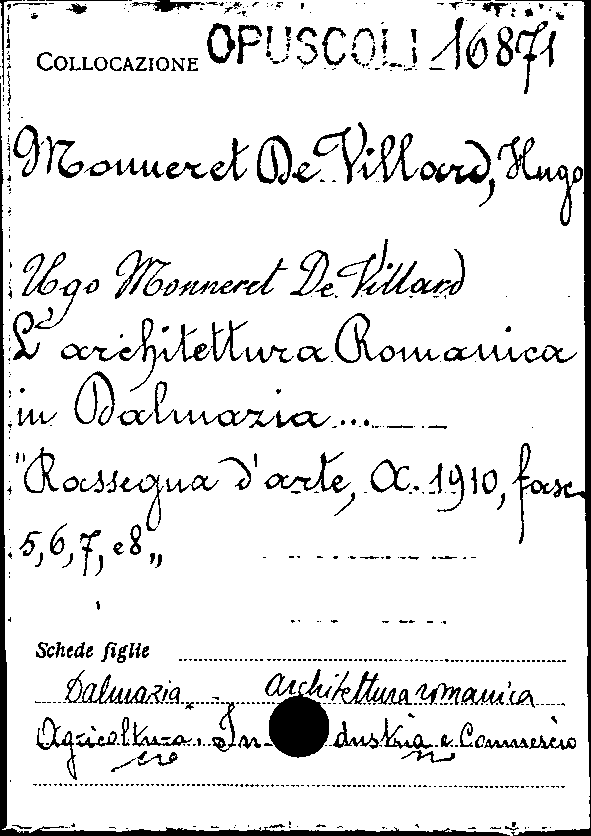 COLLOCAZIONE OPUSCOLI 16871
Monneret De Villard, Hugo
Ugo Monneret De Villard
L'architettura Romanica
in Dalmazia...
"Rassegna d'arte, A. 1910, fasc.
5, 6, 7, e 8"
Schede figlie
Dalmazia - Architettura romanica
Agricoltura. Industria e Commercio